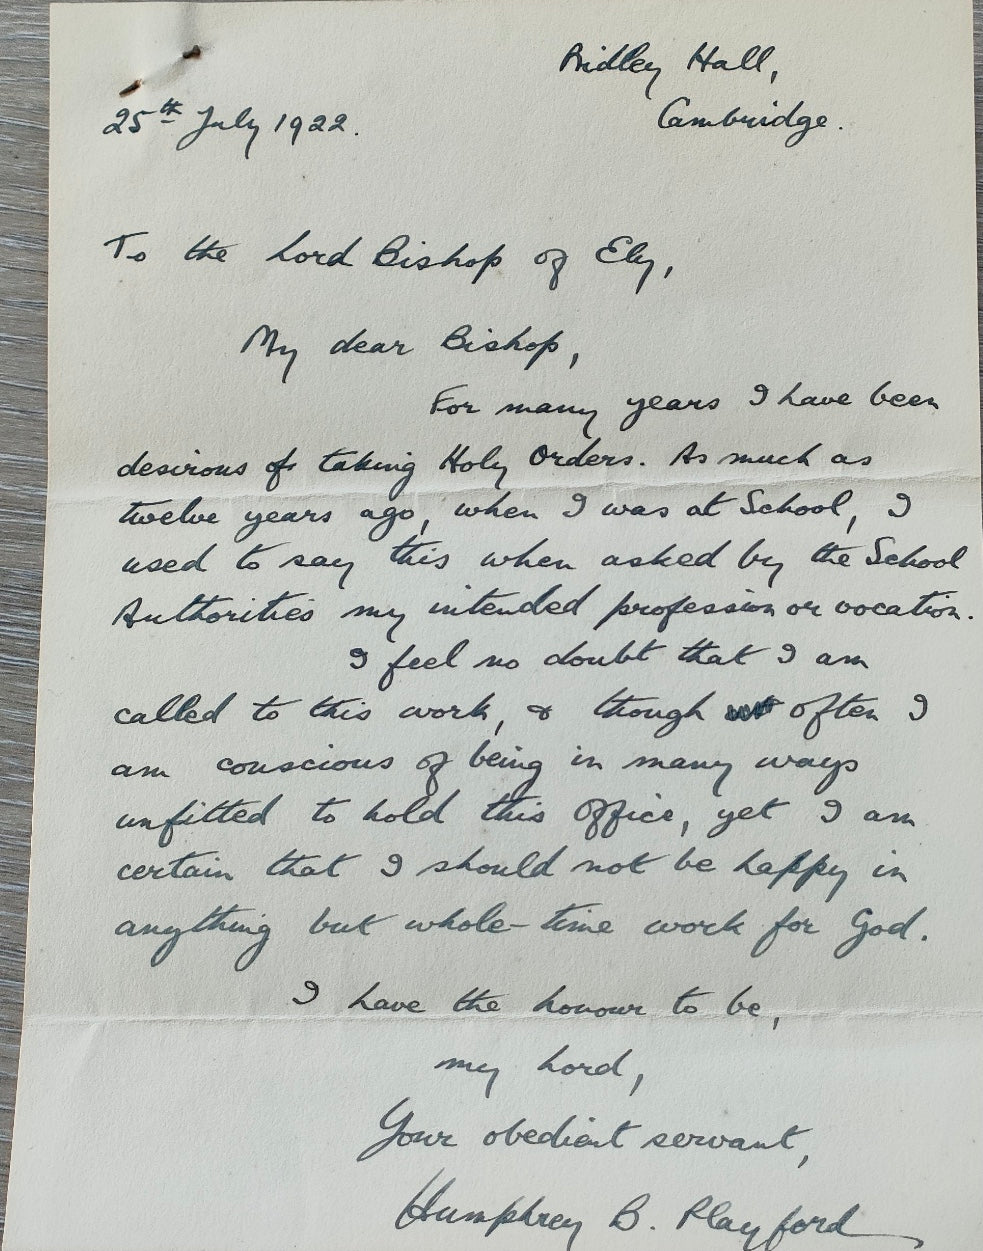 Ridley Hall,
Cambridge.
25th July 1922.
To the Lord Bishop of Ely,
My dear Bishop,
For many years I have been
desirous of taking Holy Orders. As much as
twelve years ago, when I was at School, I
used to say this when asked by the School
Authorities my intended profession or vocation.
I feel no doubt that I am
called to this work, & though often I
am conscious of being in many ways
unfitted to hold this office, yet I am
certain that I should not be happy in
anything but whole-time work for God.
I have the honour to be,
my Lord,
Your obedient servant,
Humphrey B. Playford